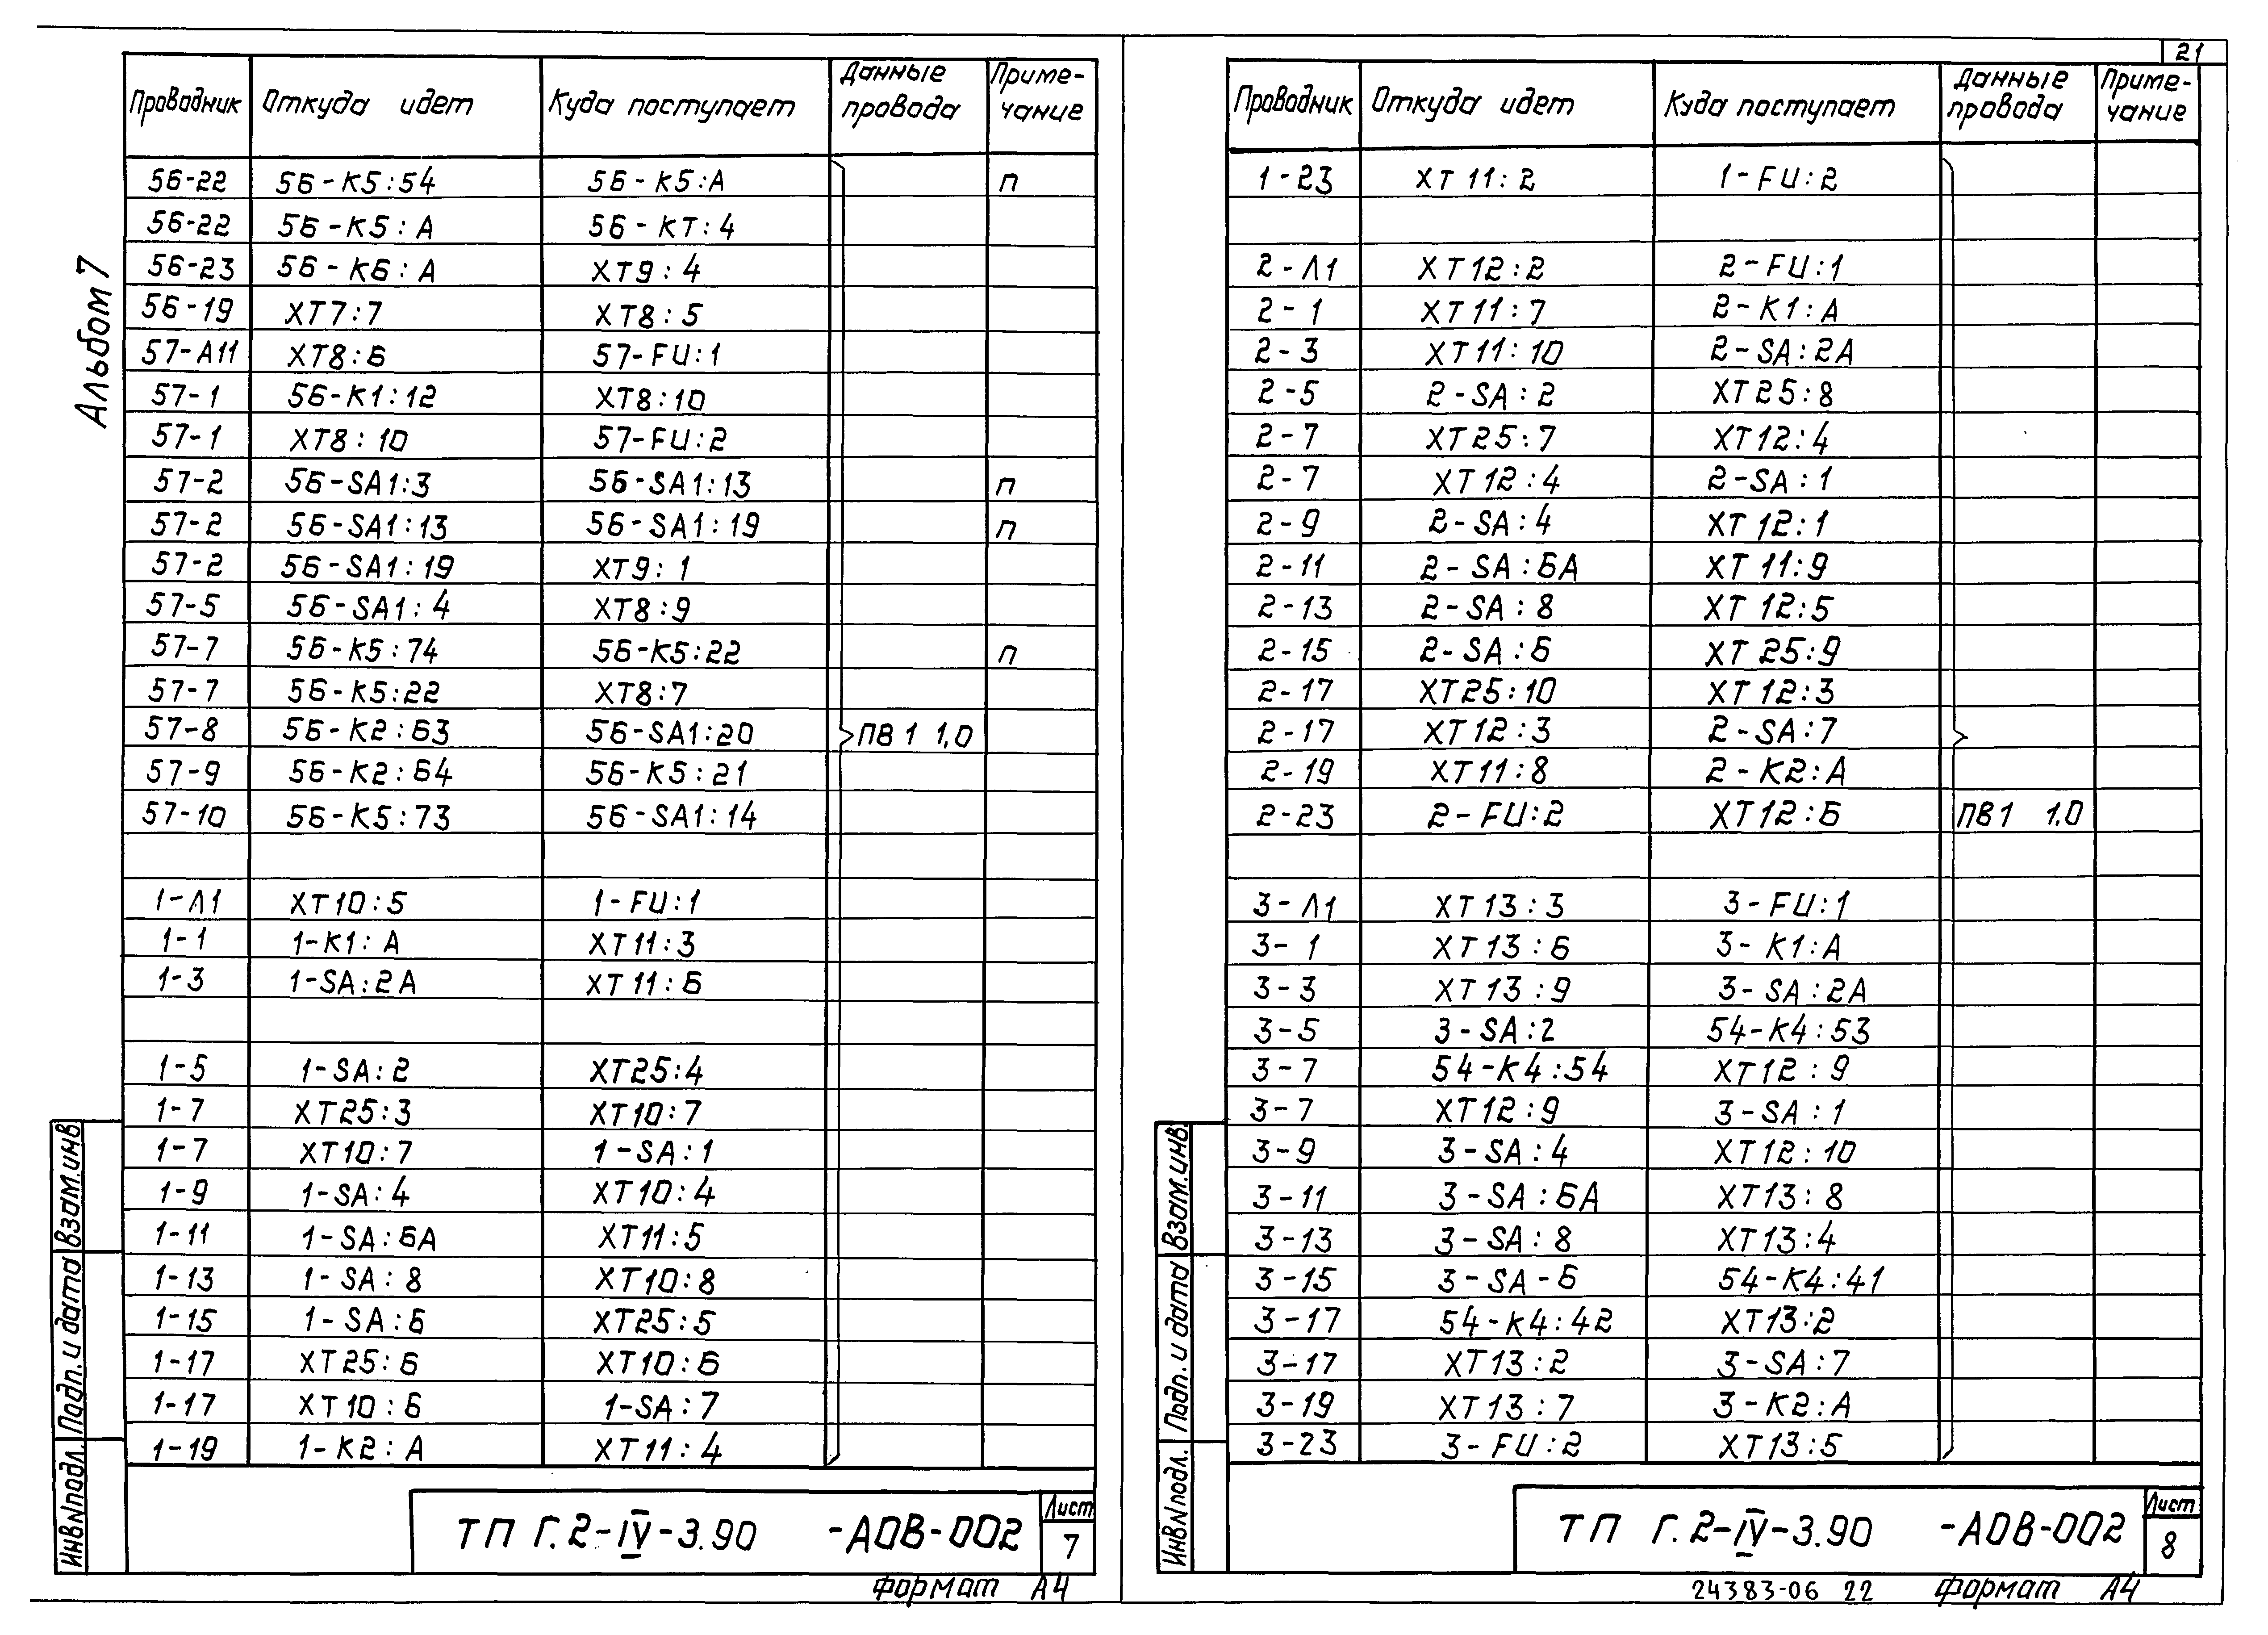 21
Альбом 7
Проводник Откуда идет Куда поступает Данные провода Приме-чание
56-22 56-К5:54 56-К5:А п
56-22 56-К5:А 56-КТ:4
56-23 56-К6:А ХТ9:4
56-19 ХТ7:7 ХТ8:5
57-А11 ХТ8:6 57-FU:1
57-1 56-К1:12 ХТ8:10
57-1 ХТ8:10 57-FU:2
57-2 56-SA1:3 56-SA1:13 п
57-2 56-SA1:13 56-SA1:19 п
57-2 56-SA1:19 ХТ9:1
57-5 56-SA1:4 ХТ8:9
57-7 56-К5:74 56-К5:22 п
57-7 56-К5:22 ХТ8:7
57-8 56-К2:63 56-SA1:20 ПВ1 1,0
57-9 56-К2:64 56-К5:21
57-10 56-К5:73 56-SA1:14
1-Л1 ХТ10:5 1-FU:1
1-1 1-К1:А ХТ11:3
1-3 1-SA:2А ХТ11:6
1-5 1-SA:2 ХТ25:4
1-7 ХТ25:3 ХТ10:7
1-7 ХТ10:7 1-SA:1
1-9 1-SA:4 ХТ10:4
1-11 1-SA:6А ХТ11:5
1-13 1-SA:8 ХТ10:8
1-15 1-SA:6 ХТ25:5
1-17 ХТ25:6 ХТ10:6
1-17 ХТ10:6 1-SA:7
1-19 1-К2:А ХТ11:4
Взам.инв
Подп. и дата
Инв№подл.
ТП Г.2-IV-3.90 -АОВ-002
Лист
7
Формат А4
Проводник Откуда идет Куда поступает Данные провода Приме-чание
1-23 ХТ11:2 1-FU:2
2-Л1 ХТ12:2 2-FU:1
2-1 ХТ11:7 2-К1:А
2-3 ХТ11:10 2-SA:2А
2-5 2-SA:2 ХТ25:8
2-7 ХТ25:7 ХТ12:4
2-7 ХТ12:4 2-SA:1
2-9 2-SA:4 ХТ12:1
2-11 2-SA:6А ХТ11:9
2-13 2-SA:8 ХТ12:5
2-15 2-SA:6 ХТ25:9
2-17 ХТ25:10 ХТ12:3
2-17 ХТ12:3 2-SA:7
2-19 ХТ11:8 2-К2:А
2-23 2-FU:2 ХТ12:6 ПВ1 1,0
3-Л1 ХТ13:3 3-FU:1
3-1 ХТ13:6 3-К1:А
3-3 ХТ13:9 3-SA:2А
3-5 3-SA:2 54-К4:53
3-7 54-К4:54 ХТ12:9
3-7 ХТ12:9 3-SA:1
3-9 3-SA:4 ХТ12:10
3-11 3-SA:6А ХТ13:8
3-13 3-SA:8 ХТ13:4
3-15 3-SA-6 54-К4:41
3-17 54-К4:42 ХТ13:2
3-17 ХТ13:2 3-SA:7
3-19 ХТ13:7 3-К2:А
3-23 3-FU:2 ХТ13:5
Взам.инв.
Подп. и дата
Инв№подл.
ТП Г.2-IV-3.90 -АОВ-002
Лист
8
24383-06 22 Формат А4